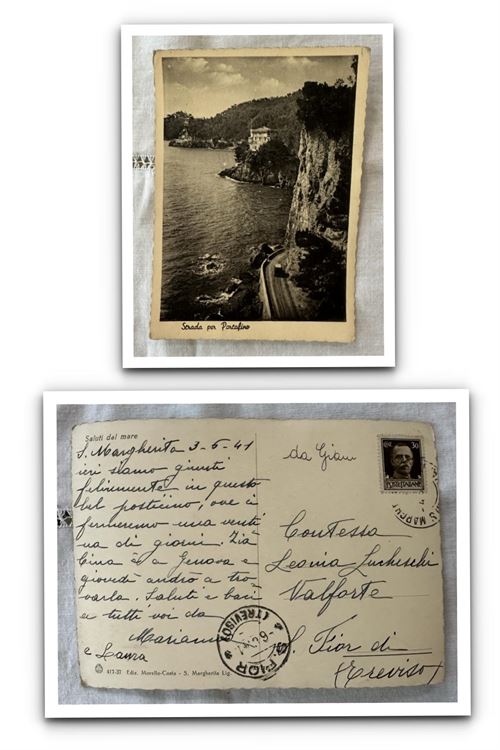 Strada per Portofino
Saluti dal mare
S. Margherita 3-6-41
ieri siamo giunti
felicemente in questo
bel posticino, ove ci
fermeremo una venti
na di giorni. Zia
Gina è a Genova e
giovedì andrò a tro
varla. Saluti e baci
a tutti voi da
Marianna
e Laura
417-37 Ediz. Morello-Costa - S. Margherita Lig.
da Giani
30
POSTE ITALIANE
Contessa
Valforte
S. Fior di
(Treviso)
S. FIOR
(TREVISO)